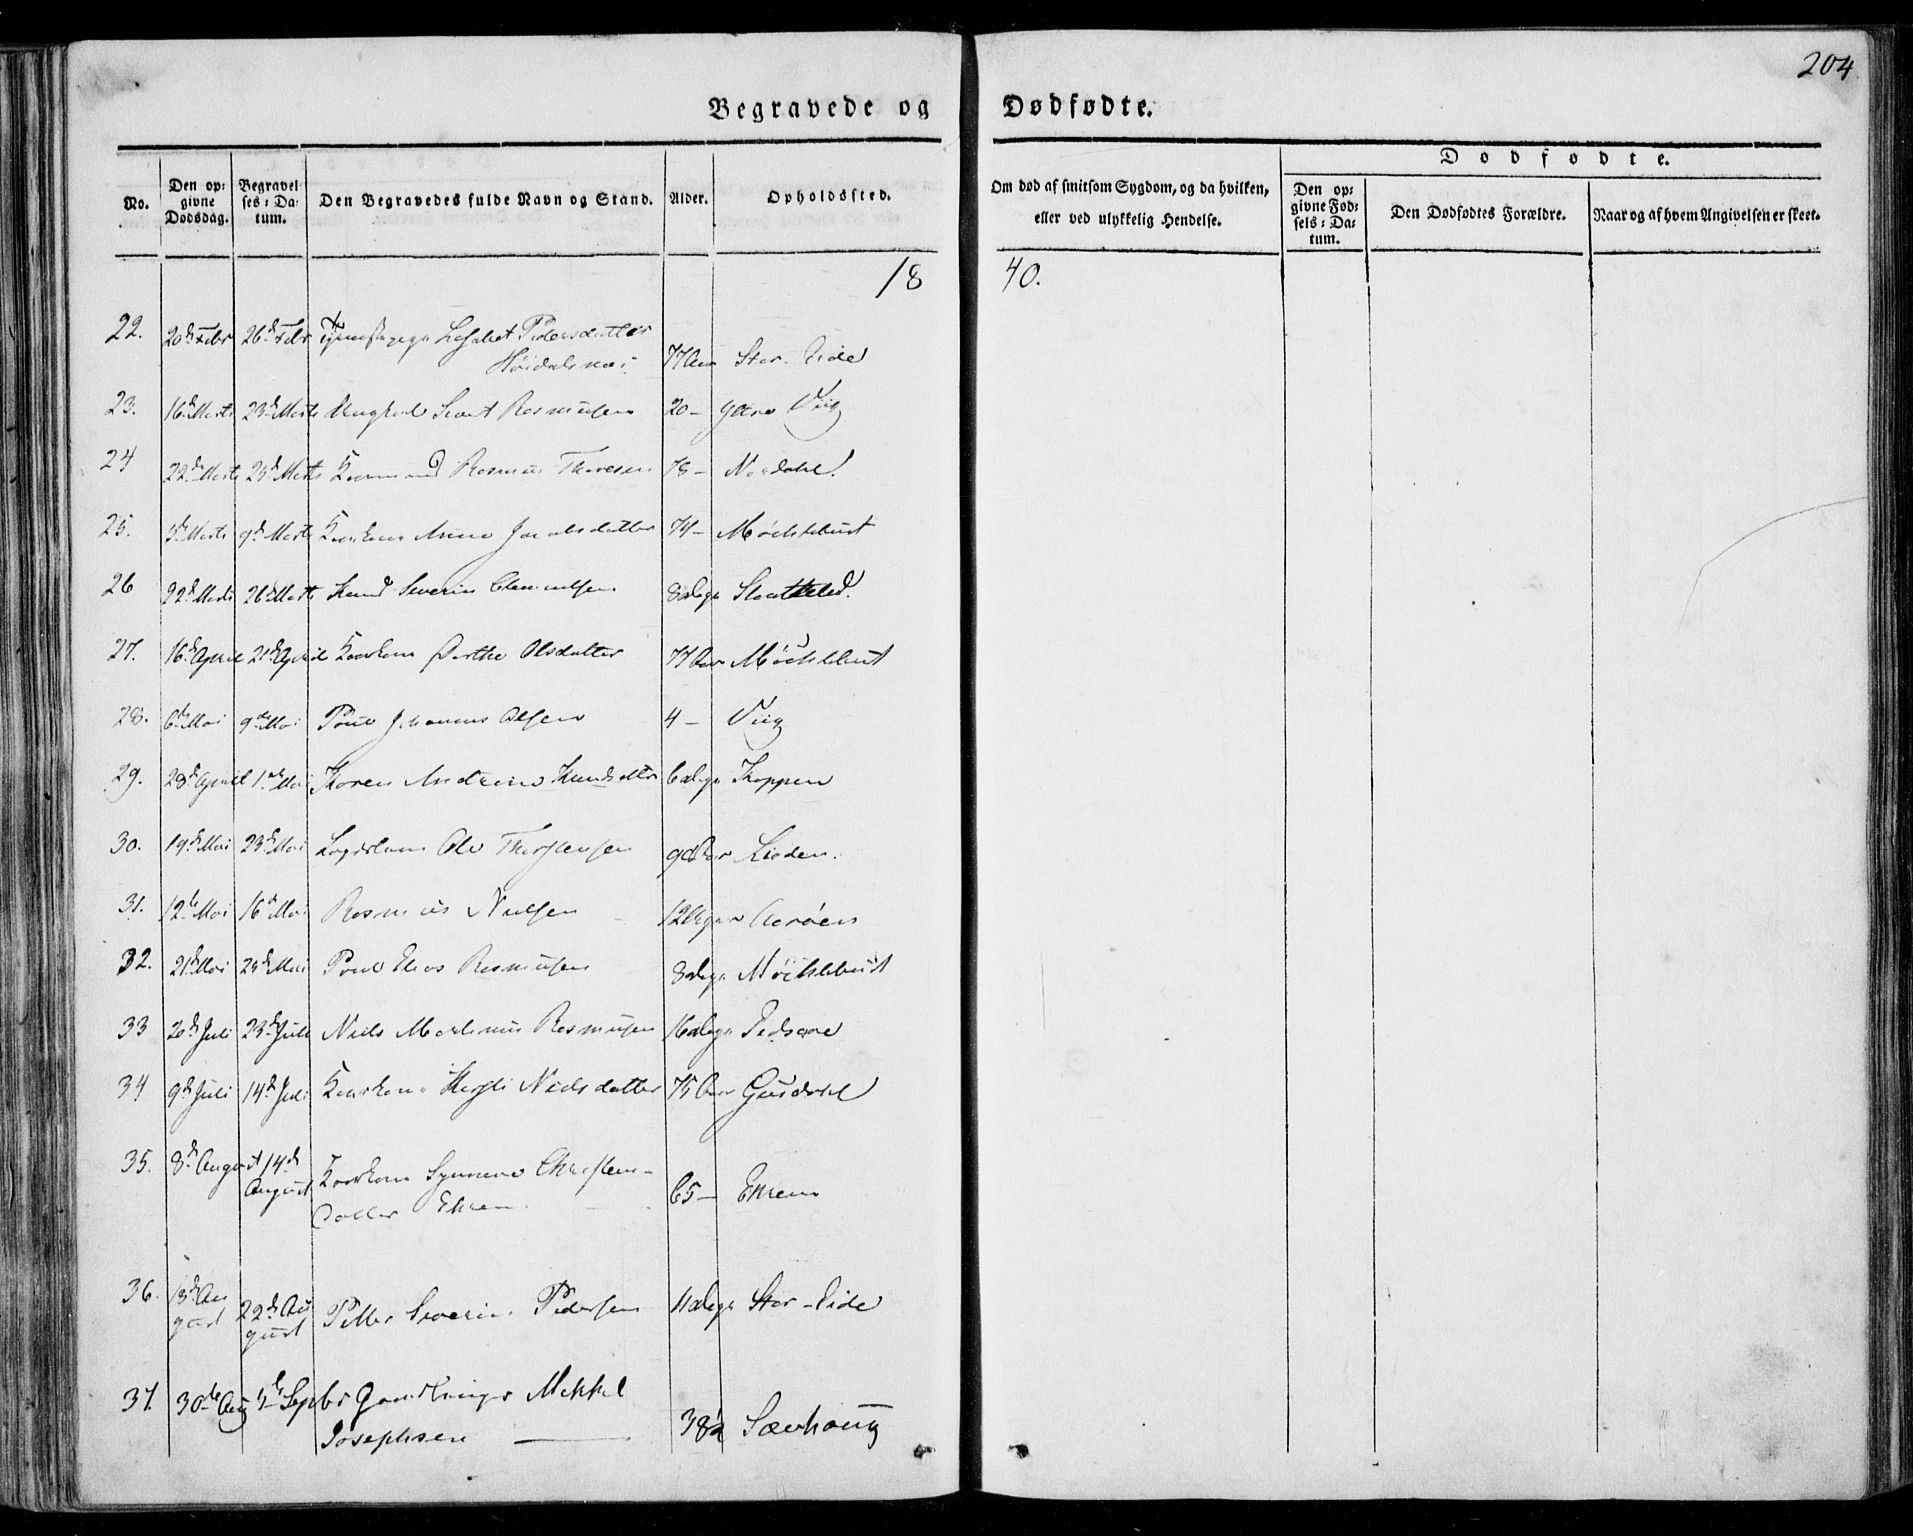 204
Begravede og Dødfødte.
No.
Den opgivne Dødsdag.
Begravelses-Datum.
Den Begravedes fulde Navn og Stand.
Alder.
Opholdssted.
Om død af smitsom Sygdom, og da hvilken, eller ved ulykkelig Hendelse.
Dødfødte.
Den opgivne Fødsels-Datum.
Den Dødfødtes Forældre.
Naar og af hvem Angivelsen er skeet.
1840.
22. 20d Febr 26d Febr Pedersdatter
77 Aar Stor-Eide
23. 16d Marts 23d Marts Ungkarl Sivert Rasmusen 20 - Ytre Viig
24 22d Marts Marts Rasmus Thoresen 78 - Nordahl
25. Marts 9d Marts Kaarkone Anne Jacobsdatter 74 - Möchlebust
26 22d Marts 26d Marts Knud Severin 8 Dage
27. 16d April 21d April Kaarkone Berthe Olsdatter 77 Aar Möchlebust
28. 6te Mai 9de Mai Poul Johannes Olsen 4 - Viig
29. 28d April 1ste Mai Karen Andrine Knudsdatter 6 Dage Koppen
30. 19d Mai 23d Mai Ole Thorstensen Aar Lieden.
31. 12te Mai 16d Mai Rasmus Nielsen 12 Uger Aaröen
32. 21d Mai Mai Poul Elias Rasmusen 8 Dage Möchlebust
33 20d Juli 23d Juli Niels Martinus Rasmusen 16 Dage
34 9d Juli 14d Juli Kaarkone Nielsdatter 75 Aar Gusdahl
35. 8d August 14d August Kaarkone Synneve Christens-
datter Ekrem. 65 - Ekrem
36. 13d August 22d August Petter Severin Pedersen 11 Dage Stor-Eide
37. 30te Aug Septbr Mikkel
Josephsen 38 Sævhoug